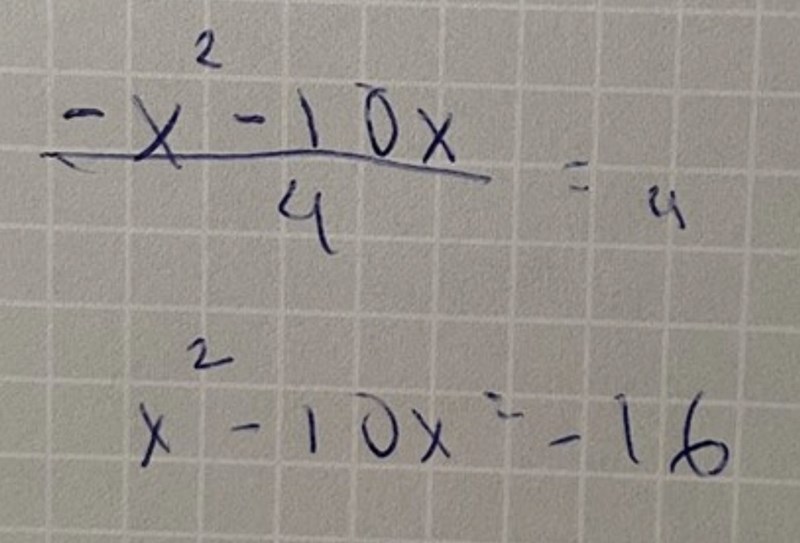 -x²-10x
4
= 4
x²-10x=-16